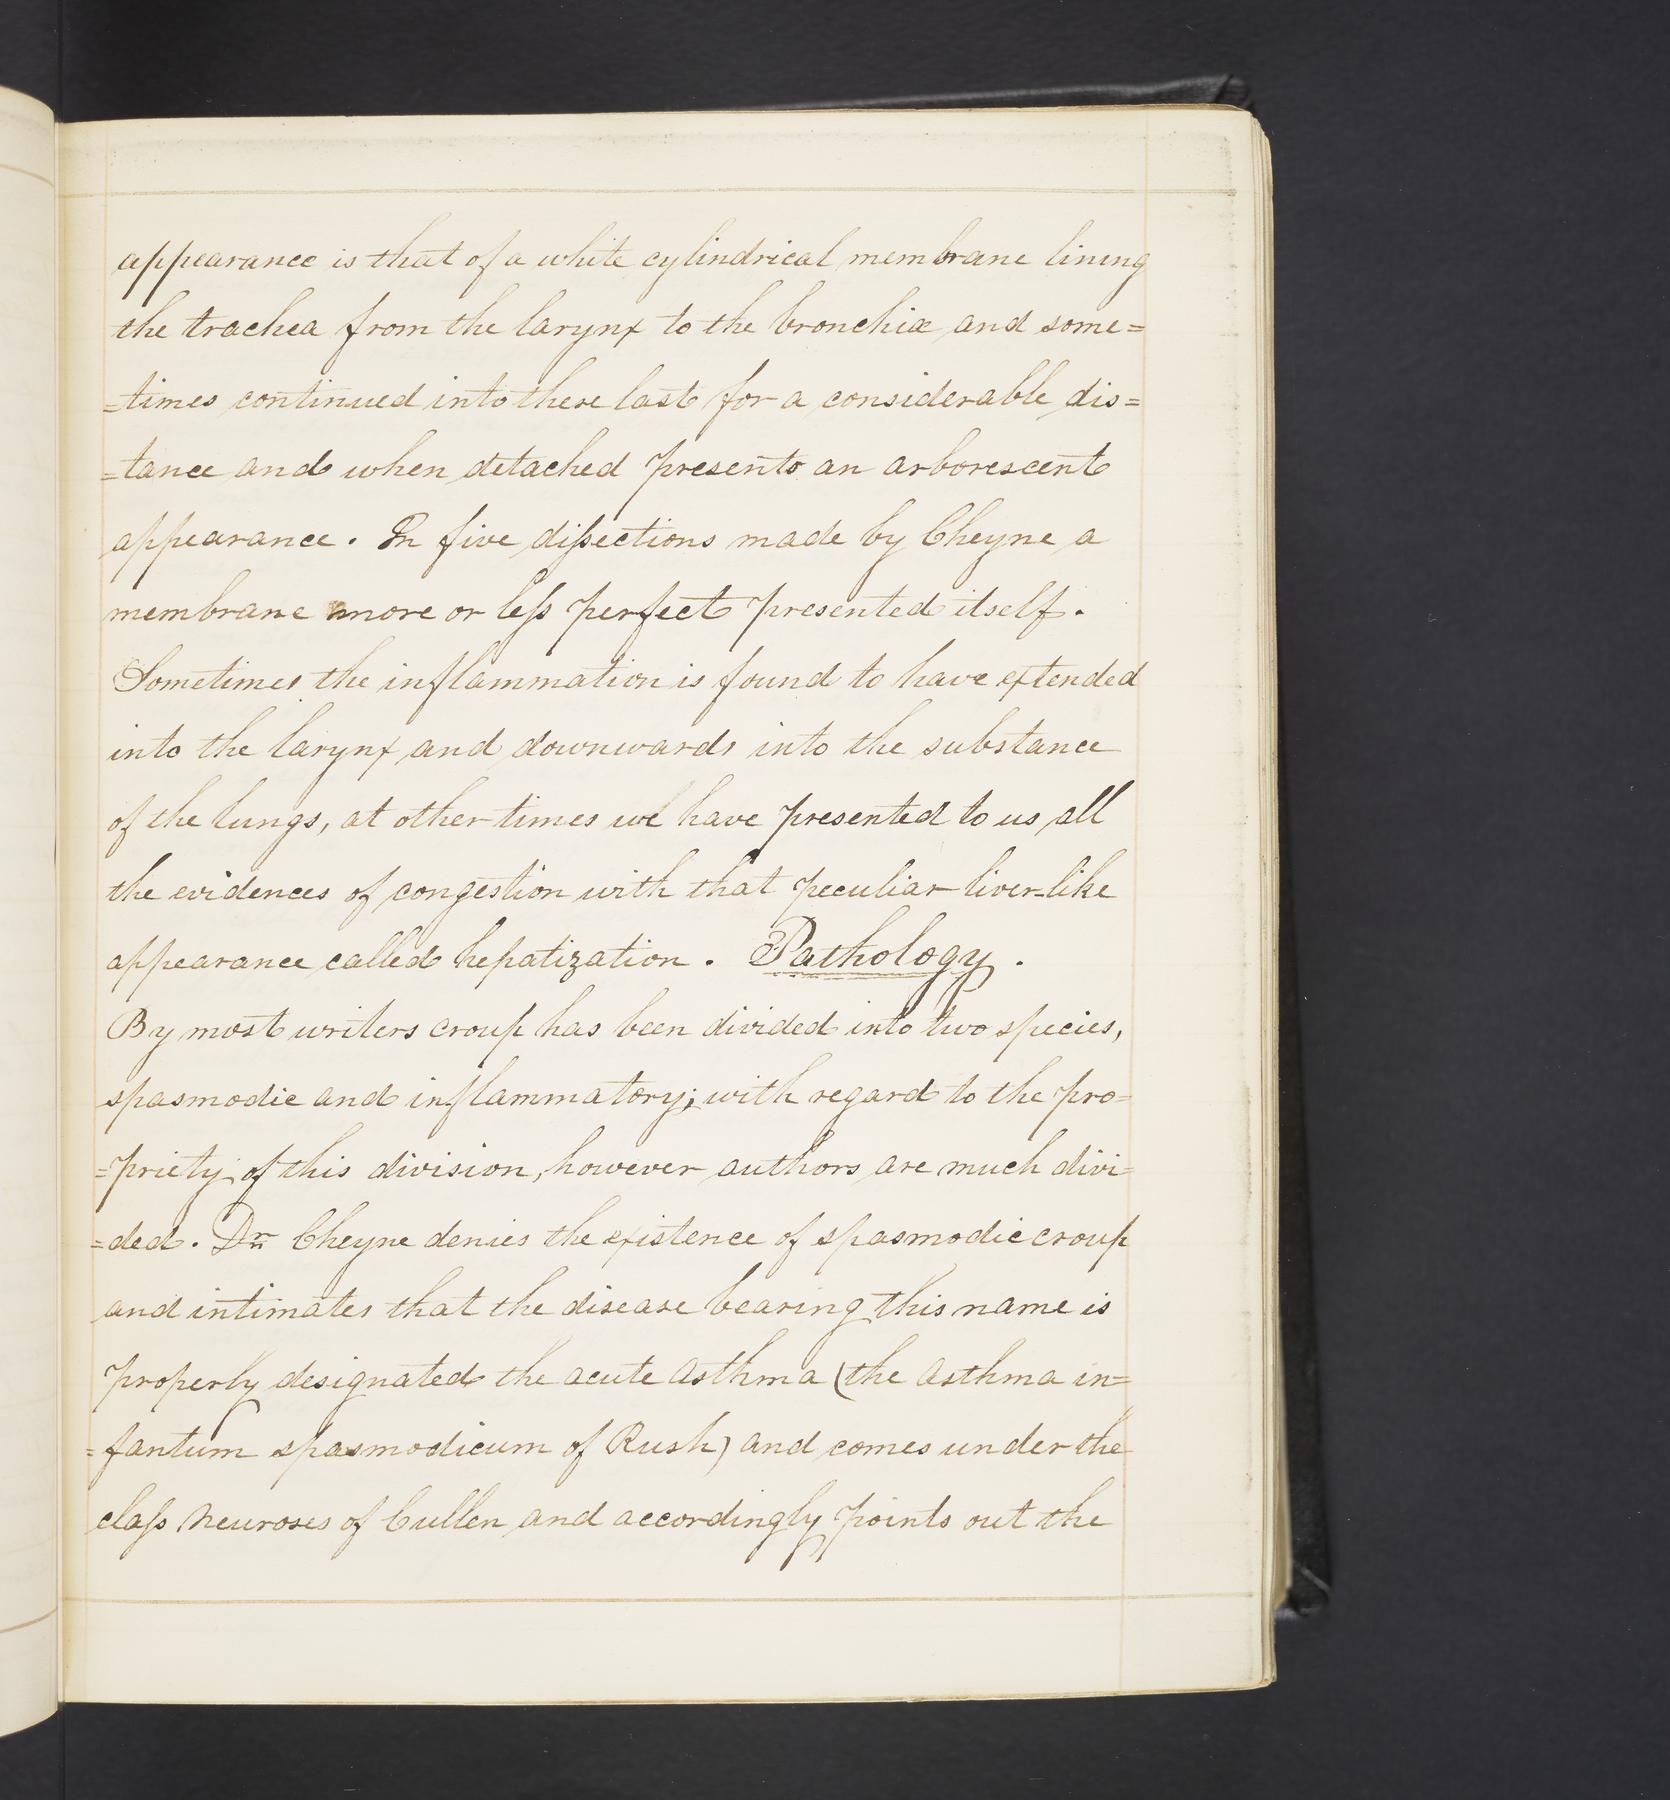 appearance is that of a white cylindrical membrane lining
the trachea from the larynx to the bronchiæ and some=
=times continued into these last for a considerable dis=
=tance and when detached presents an arborescent
appearance. In five dißections made by Cheyne a
membrane more or leß perfect presented itself.
Sometimes the inflammation is found to have extended
into the larynx and downwards into the substance
of the lungs, at other times we have presented to us all
the evidences of congestion with that peculiar liver-like
appearance called hepatization. Pathology.
By most writers croup has been divided into two species,
spasmodic and inflammatory; with regard to the pro=
=priety of this division, however authors are much divi=
=ded. Dr Cheyne denies the existence of spasmodic croup
and intimates that the disease bearing this name is
properly designated the acute asthma (the asthma in=
=fantum spasmodicum of Rush) and comes under the
claß neuroses of Cullen and accordingly points out the